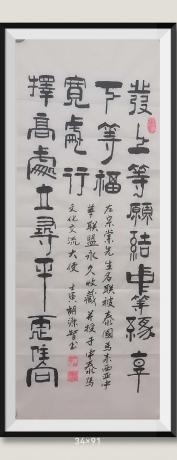 發上等願結中等緣享
下等福
寬處行
擇高處立尋平處住
左宗棠先生名联被泰國馬來西亞中
華联盟永久收藏并授于中泰馬
文化交流大使 壬寅胡源智書
34×91